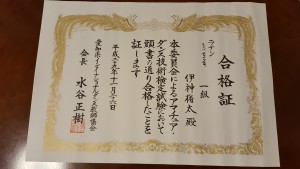 合格証
ラテン
一級
伊神権太 殿
本委員会によるアマチュア・
ダンス技術検定試験において
頭書の通り合格したことを
証します
平成二十九年十一月二十六日
会長 水谷正樹